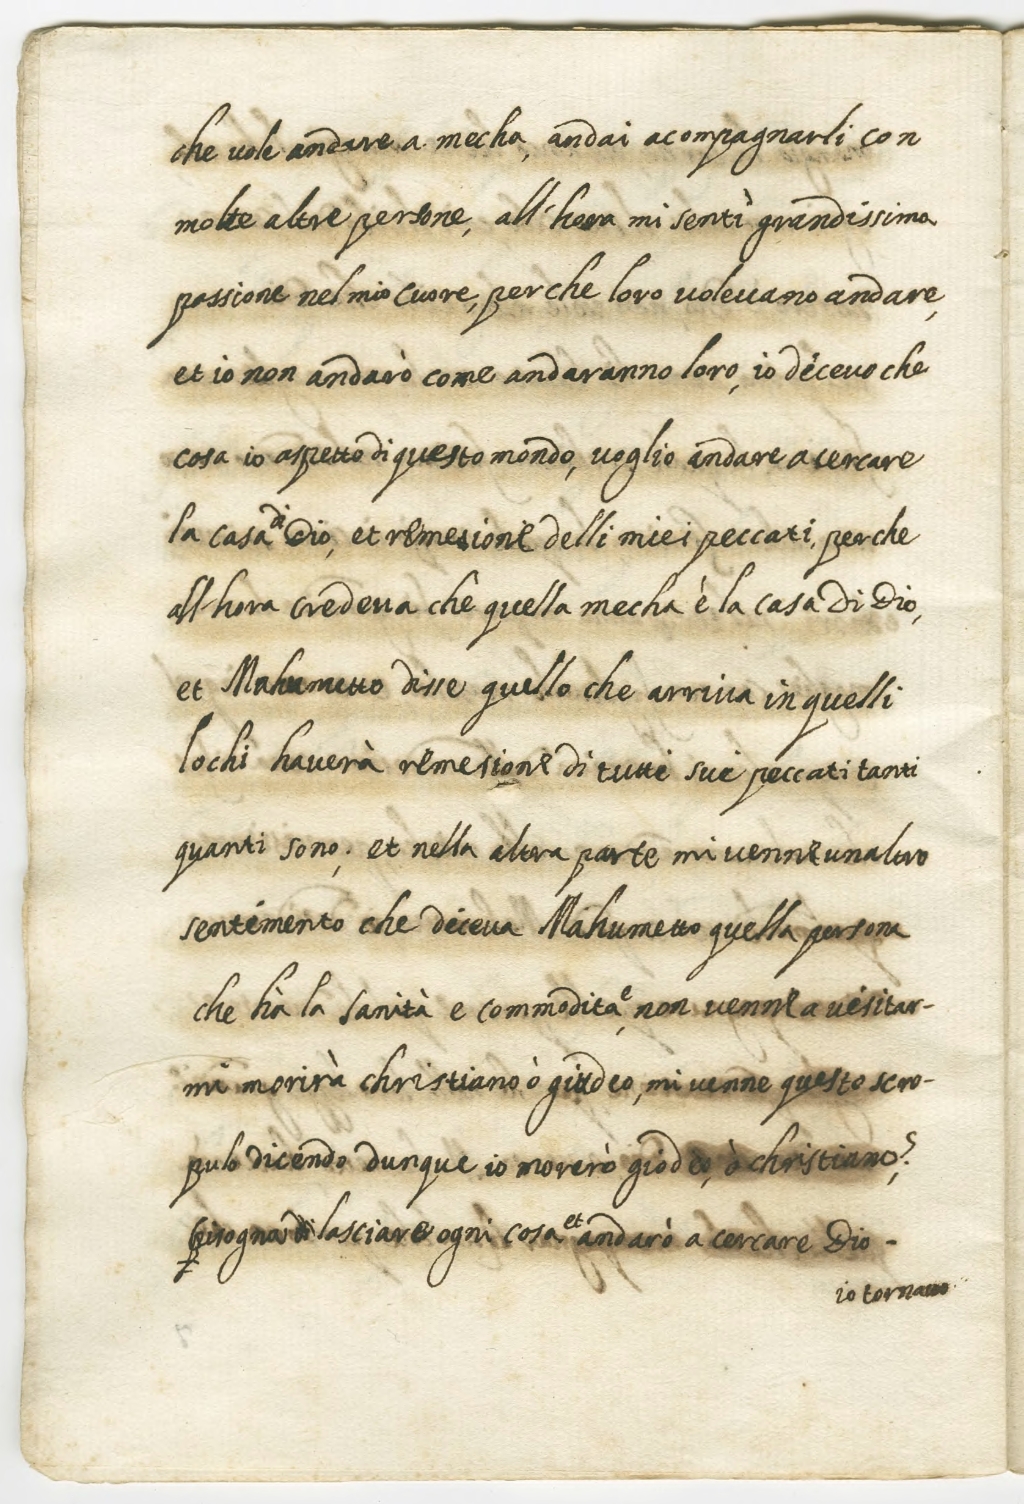 che uole andare a mecha, andai acompagnarli con
molte altre persone, all'hora mi sentì grandissima
passione nel mio cuore, perche loro uoleuano andare,
et io non andarò come andaranno loro, io diceuo che
cosa io aspetto di questo mondo, uoglio andare a cercare
la casa di Dio, et remesione delli miei peccati, perche
all'hora credeua chè quella mecha è la casa di Dio,
et Mahumetto disse quello che arriua in quelli
lochi hauerà remesione di tutti sui peccati tanti
quanti sono; et nella altra parte mi venne un altro
sentimento che diceua Mahumetto quella persona
che hà la sanità e commodità, e non uenne a uisitar-
mi morirà christiano ò giudeo, mi uenne questo scro-
pulo dicendo dunque io morerò giodeo, ò christiano?
bisogna di lasciare ogni cosa et andarò a cercare Dio -
io tornauo